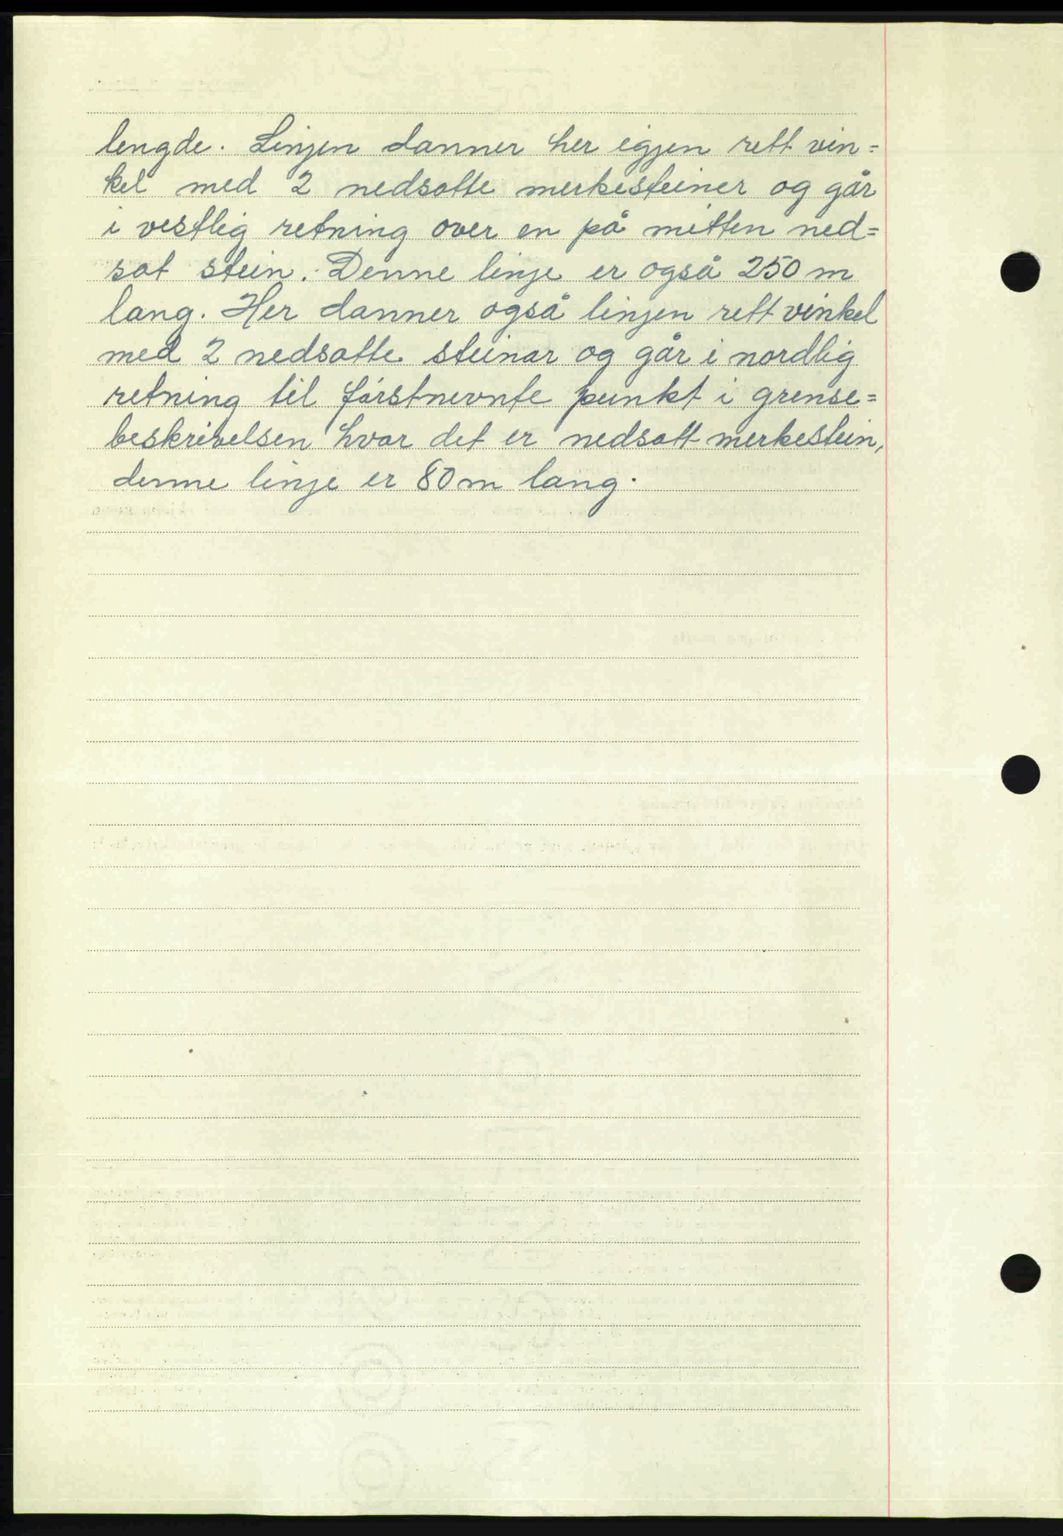 lengde. Linjen danner her igjen rett vin=
kel med 2 nedsatte merkesteiner og går
i vestlig retning over en på mitten ned=
sat stein. Denne linje er også 250 m
lang. Her danner også linjen rett vinkel
med 2 nedsatte steinar og går i nordlig
retning til førstnevnte punkt i grense=
beskrivelsen hvor det er nedsatt merkestein,
denne linje er 80 m lang.